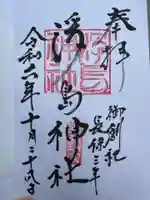 奉拝
御創祀
長保三年
浮島神社
令和六年十月二十六日